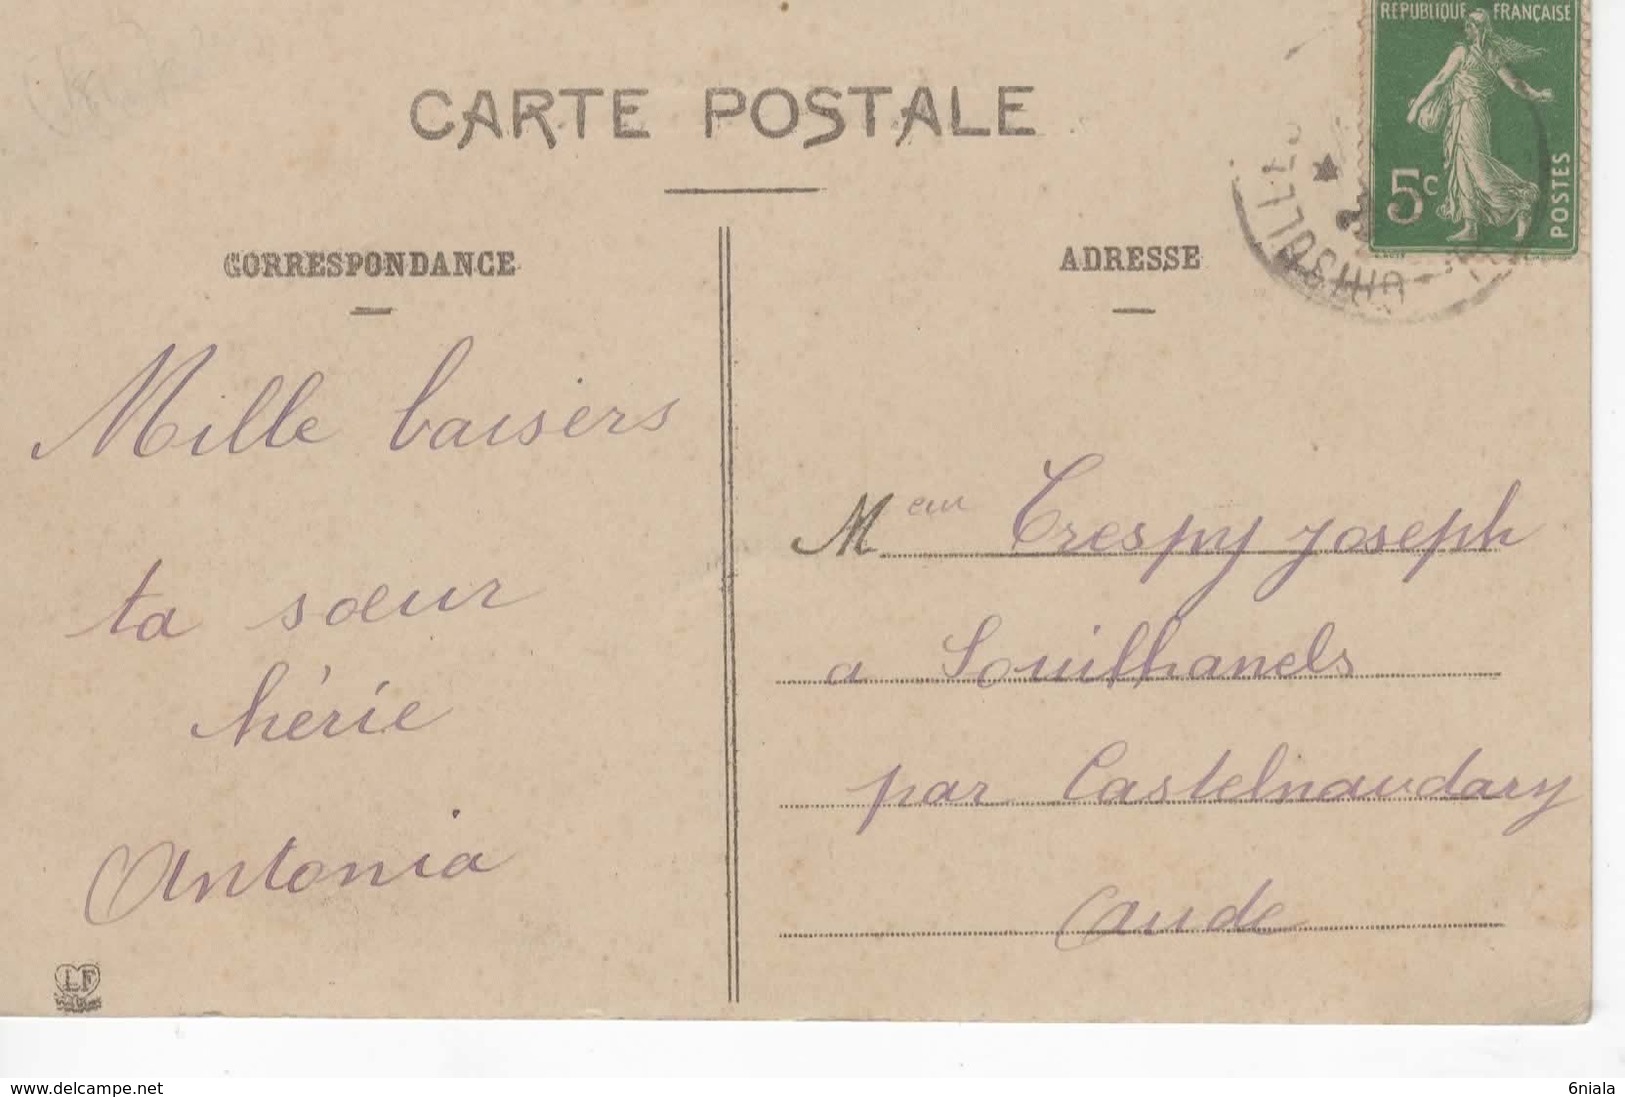 CARTE POSTALE
RÉPUBLIQUE FRANÇAISE
5c
POSTES
CORRESPONDANCE
Mille baisers
ta sœur
hérie
Antonia
LF
ADRESSE
Meur Crespy Joseph
a Souilhanels
par Castelnaudary
Aude
www.delcampe.net
6niala